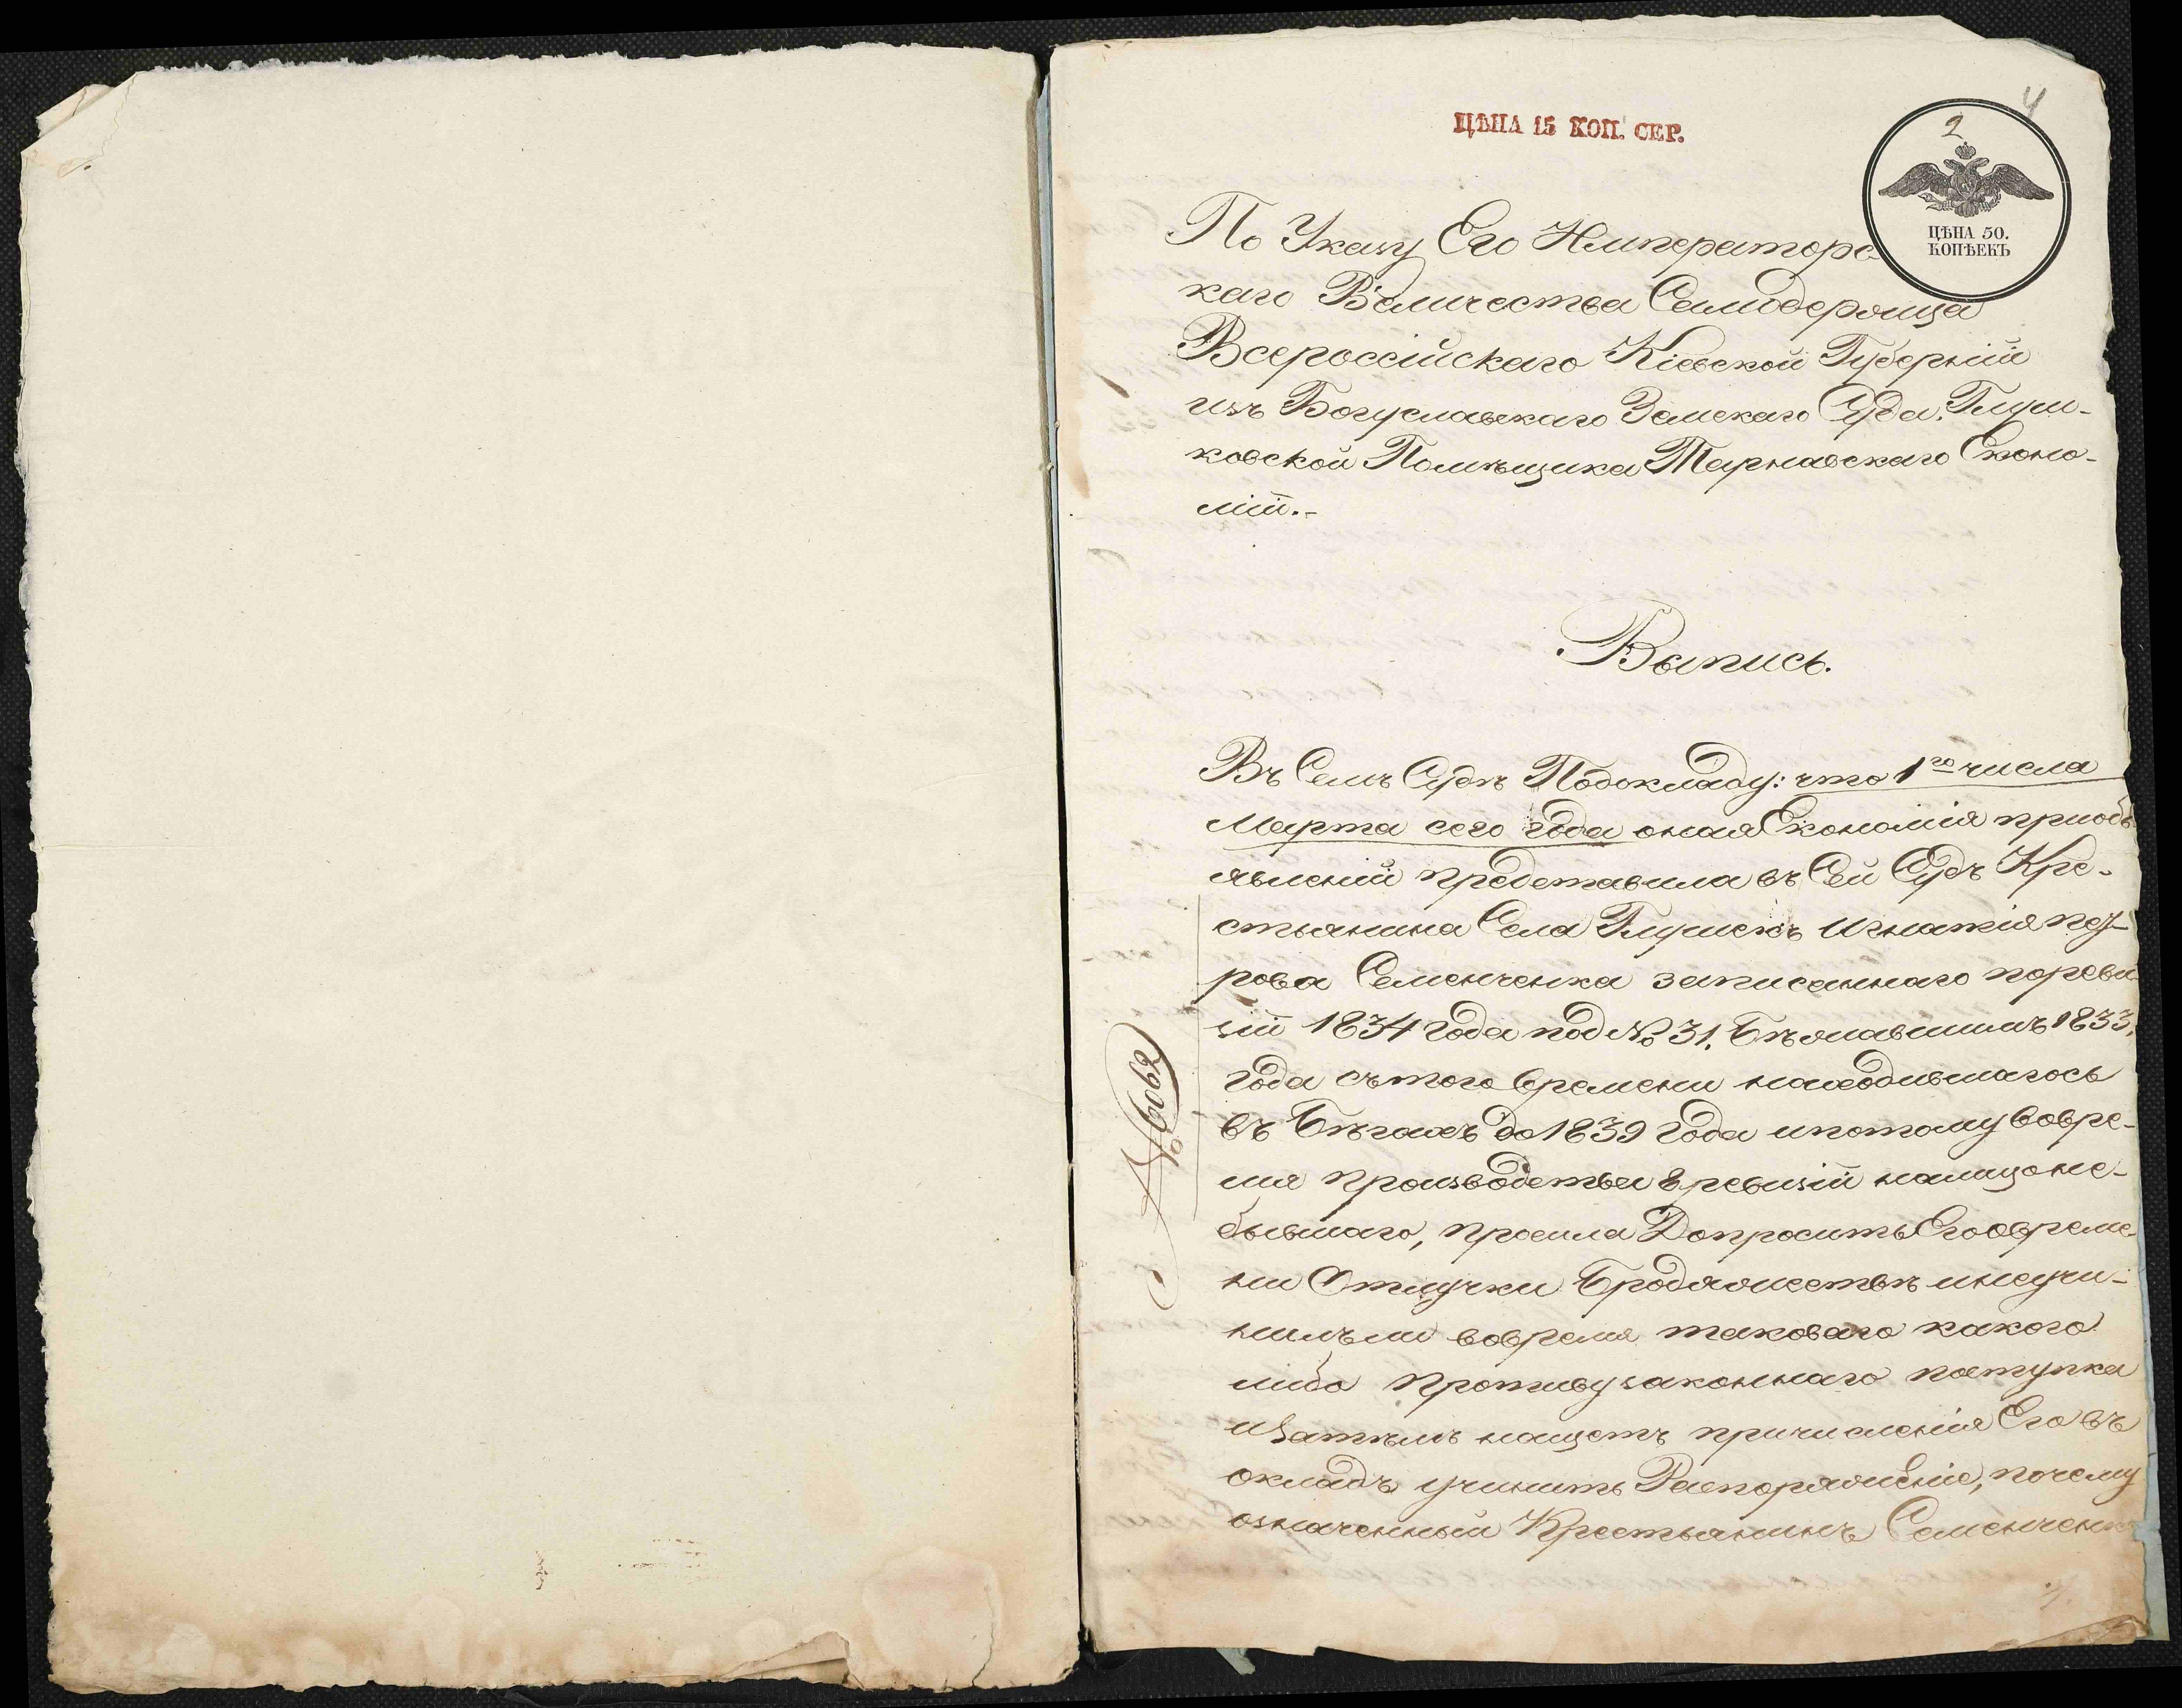 ЦѢНА 15 КОП. СЕР.
4
2
ЦѢНА 50.
КОПѢЕКЪ
По Указу Его Императорс-
каго Величества Самодержца
Всероссійскаго Кіевской Губерніи
изъ Богуславскаго Земскаго Суда. Глуш-
ковской Помѣщика Тарнавскаго Еконо-
міи.-
Выпись.
Въ Семъ Судѣ Подокладу: что 1го числа
Марта сего года оная Економія приобъ
явленіи представила въ Сей Судъ Кре-
стьянина Села Глушекъ Игнатія пет-
рова Семенченка записаннаго пореви
зіи 1834 года под № 31. Бѣжавшимъ 1833.
года съ того времени находившагось
въ Бѣгахъ до 1839 года ипотому вовре-
мя производства 8 ревизіи налицо не-
бывшаго, просила Допросить Его овреме-
ни Отлучки Бродяжествѣ инеучи-
нилъ ли вовремя таковаго какого
либо противузаконнаго поступка
и Затѣмъ нащетъ причисленія Его въ
окладъ учинить Распоряженіе, почему
означенный Крестьянинъ Семенченко
№ 6062